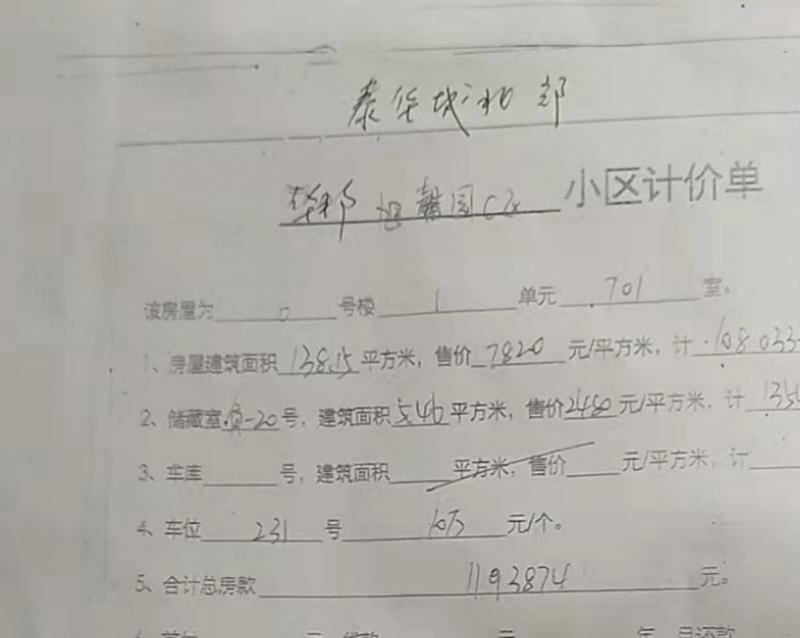 泰华城北郡
华郡 馨园C区 小区计价单
该房屋为 0 号楼 1 单元 701 室。
1、房屋建筑面积 138.15 平方米，售价 7820 元/平方米，计 108033
2、储藏室 -20 号，建筑面积 5.46 平方米，售价 2480 元/平方米，计 135
3、车库 号，建筑面积 平方米，售价 元/平方米，计
4、车位 231 号 10万 元/个。
5、合计总房款 1193874 元。